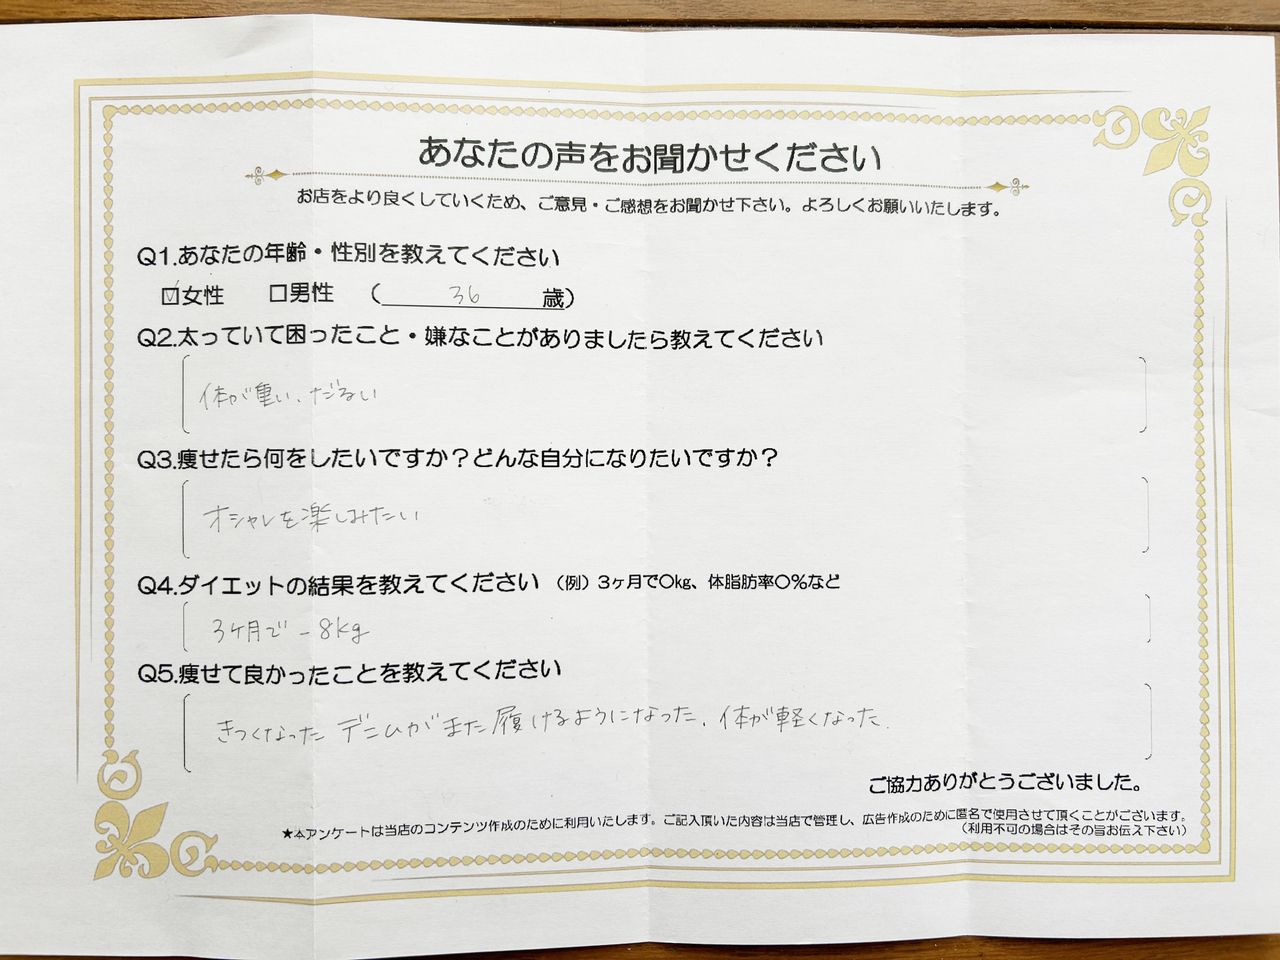 あなたの声をお聞かせください
お店をより良くしていくため、ご意見・ご感想をお聞かせ下さい。よろしくお願いいたします。
Q1.あなたの年齢・性別を教えてください
☑女性 □男性 ( 36 歳)
Q2.太っていて困ったこと・嫌なことがありましたら教えてください
体が重い、だるい
Q3.痩せたら何をしたいですか？どんな自分になりたいですか？
オシャレを楽しみたい
Q4.ダイエットの結果を教えてください（例）3ヶ月で〇kg、体脂肪率〇%など
3ヶ月で −8kg
Q5.痩せて良かったことを教えてください
きつくなった デニムがまた履けるようになった、体が軽くなった.
ご協力ありがとうございました。
★本アンケートは当店のコンテンツ作成のために利用いたします。ご記入頂いた内容は当店で管理し、広告作成のために匿名で使用させて頂くことがございます。
（利用不可の場合はその旨お伝え下さい）